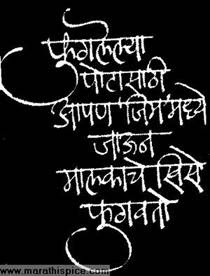 फुगलेल्या
पोटासाठी
आपण 'जिम' मध्ये
जाऊन
मालकाचे खिसे
फुगवतो
www.marathispice.com